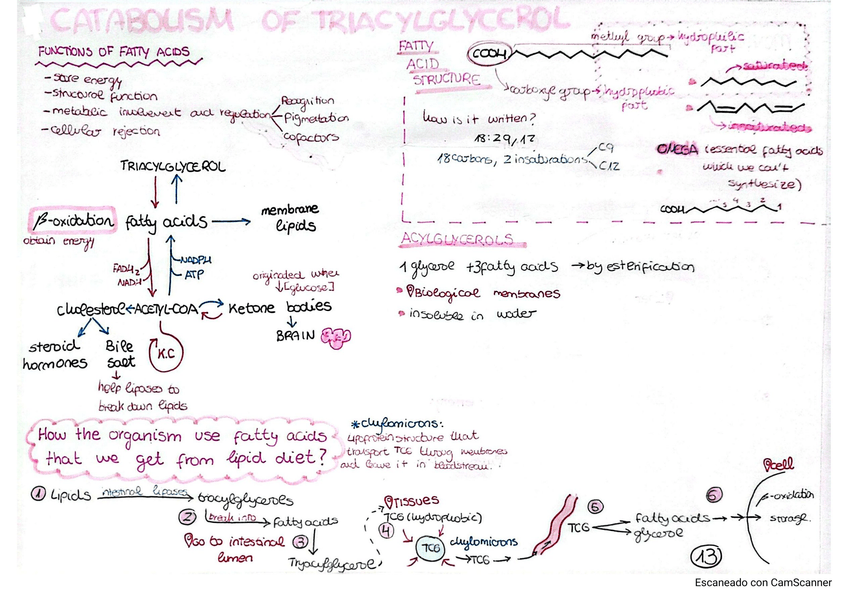 CATABOLISM OF TRIACYLGLYCEROL
FUNCTIONS OF FATTY ACIDS
- Store energy
- structural function
- metabolic involvement and regulation
Recognition
Pigmentation
cofactors
- cellular rejection
TRIACYLGLYCEROL
β-oxidation
fatty acids
membrane
lipids
obtain energy
FADH2
NADH
NADPH
ATP
originated when
↓[glucose]
cholesterol
ACETYL-COA
Ketone bodies
BRAIN
steroid
hormones
Bile
salt
K.C
help lipases to
break down lipids
FATTY
ACID
STRUCTURE
COOH
methyl group → hydrophilic
part
carboxyl group → hydrophobic
part
saturated
insaturated
how is it written?
18:2 9,12
18 carbons, 2 insaturations
C9
C12
OMEGA (essential fatty acids
which we can't
synthesize)
COOH
5 4 3 2 1
ACYLGLYCEROLS
1 glycerol + 3 fatty acids → by esterification
Biological membranes
insoluble in water
How the organism use fatty acids
that we get from lipid diet?
*chylomicrons:
lipoprotein structure that
transport TCG throug membranes
and leave it in bloodstream.
① Lipids
intestinal lipases
tracylglycerols
②
break into
fatty acids
Go to intestinal
lumen
③
Tryacylglycerol
tissues
TCG (hydrophobic)
④
TCG
chylomicrons
→ TCG →
TCG
⑥
fatty acids
glycerol
5
cell
β-oxidation
storage.
13
Escaneado con CamScanner